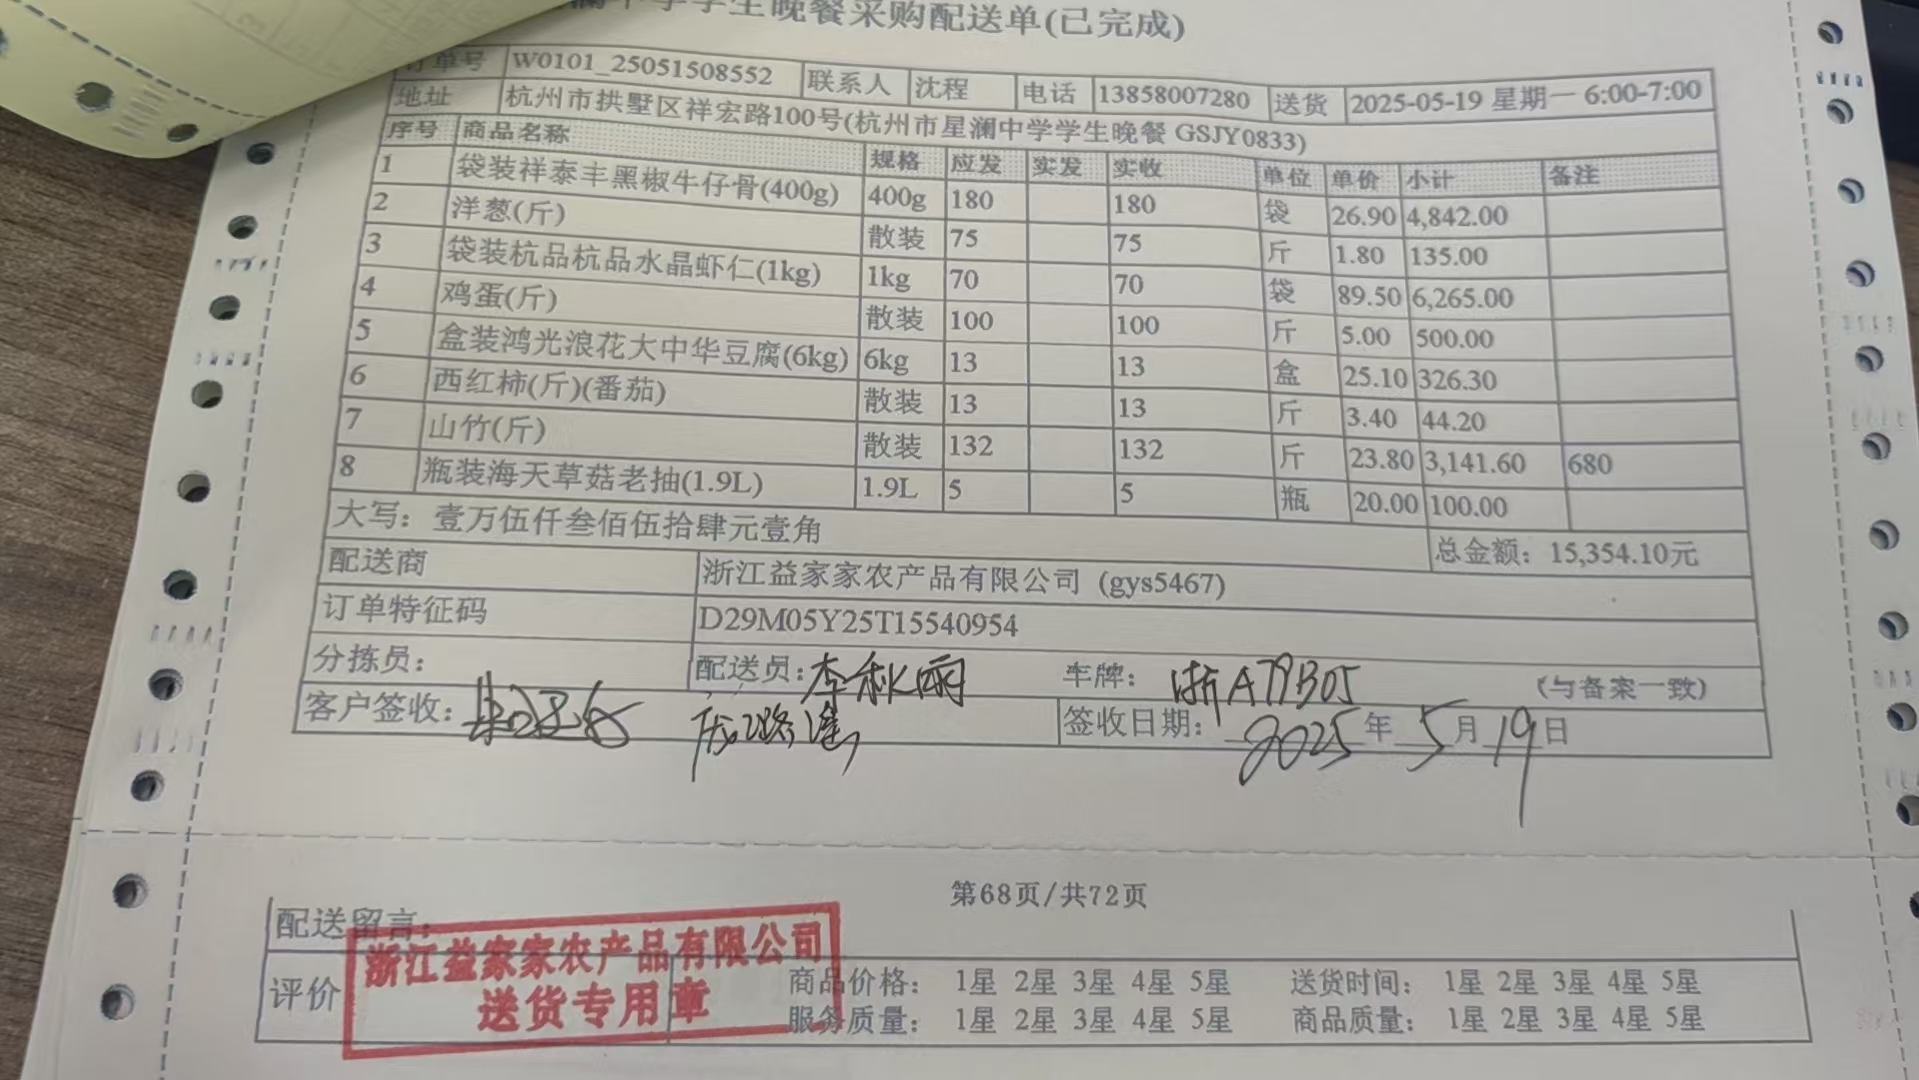 学生晚餐采购配送单(已完成)
订单号 W0101_25051508552 联系人 沈程 电话 13858007280 送货 2025-05-19 星期一 6:00-7:00
地址 杭州市拱墅区祥宏路100号(杭州市星澜中学学生晚餐 GSJY0833)
序号 商品名称 规格 应发 实发 实收 单位 单价 小计 备注
1 袋装祥泰丰黑椒牛仔骨(400g) 400g 180 180 袋 26.90 4,842.00
2 洋葱(斤) 散装 75 75 斤 1.80 135.00
3 袋装杭品杭品水晶虾仁(1kg) 1kg 70 70 袋 89.50 6,265.00
4 鸡蛋(斤) 散装 100 100 斤 5.00 500.00
5 盒装鸿光浪花大中华豆腐(6kg) 6kg 13 13 盒 25.10 326.30
6 西红柿(斤)(番茄) 散装 13 13 斤 3.40 44.20
7 山竹(斤) 散装 132 132 斤 23.80 3,141.60 680
8 瓶装海天草菇老抽(1.9L) 1.9L 5 5 瓶 20.00 100.00
大写：壹万伍仟叁佰伍拾肆元壹角 总金额：15,354.10元
配送商 浙江益家家农产品有限公司 (gys5467)
订单特征码 D29M05Y25T15540954
分拣员： 配送员：李秋雨 车牌：浙A79B05 (与备案一致)
客户签收： 签收日期：2025年5月19日
第68页/共72页
配送留言：
浙江益家家农产品有限公司
送货专用章
评价 商品价格： 1星 2星 3星 4星 5星 送货时间： 1星 2星 3星 4星 5星
服务质量： 1星 2星 3星 4星 5星 商品质量： 1星 2星 3星 4星 5星